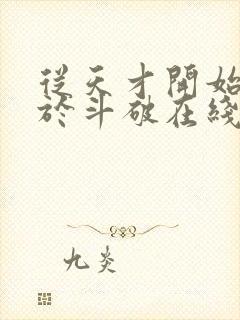 從天才開始
於斗破在綫
九炎